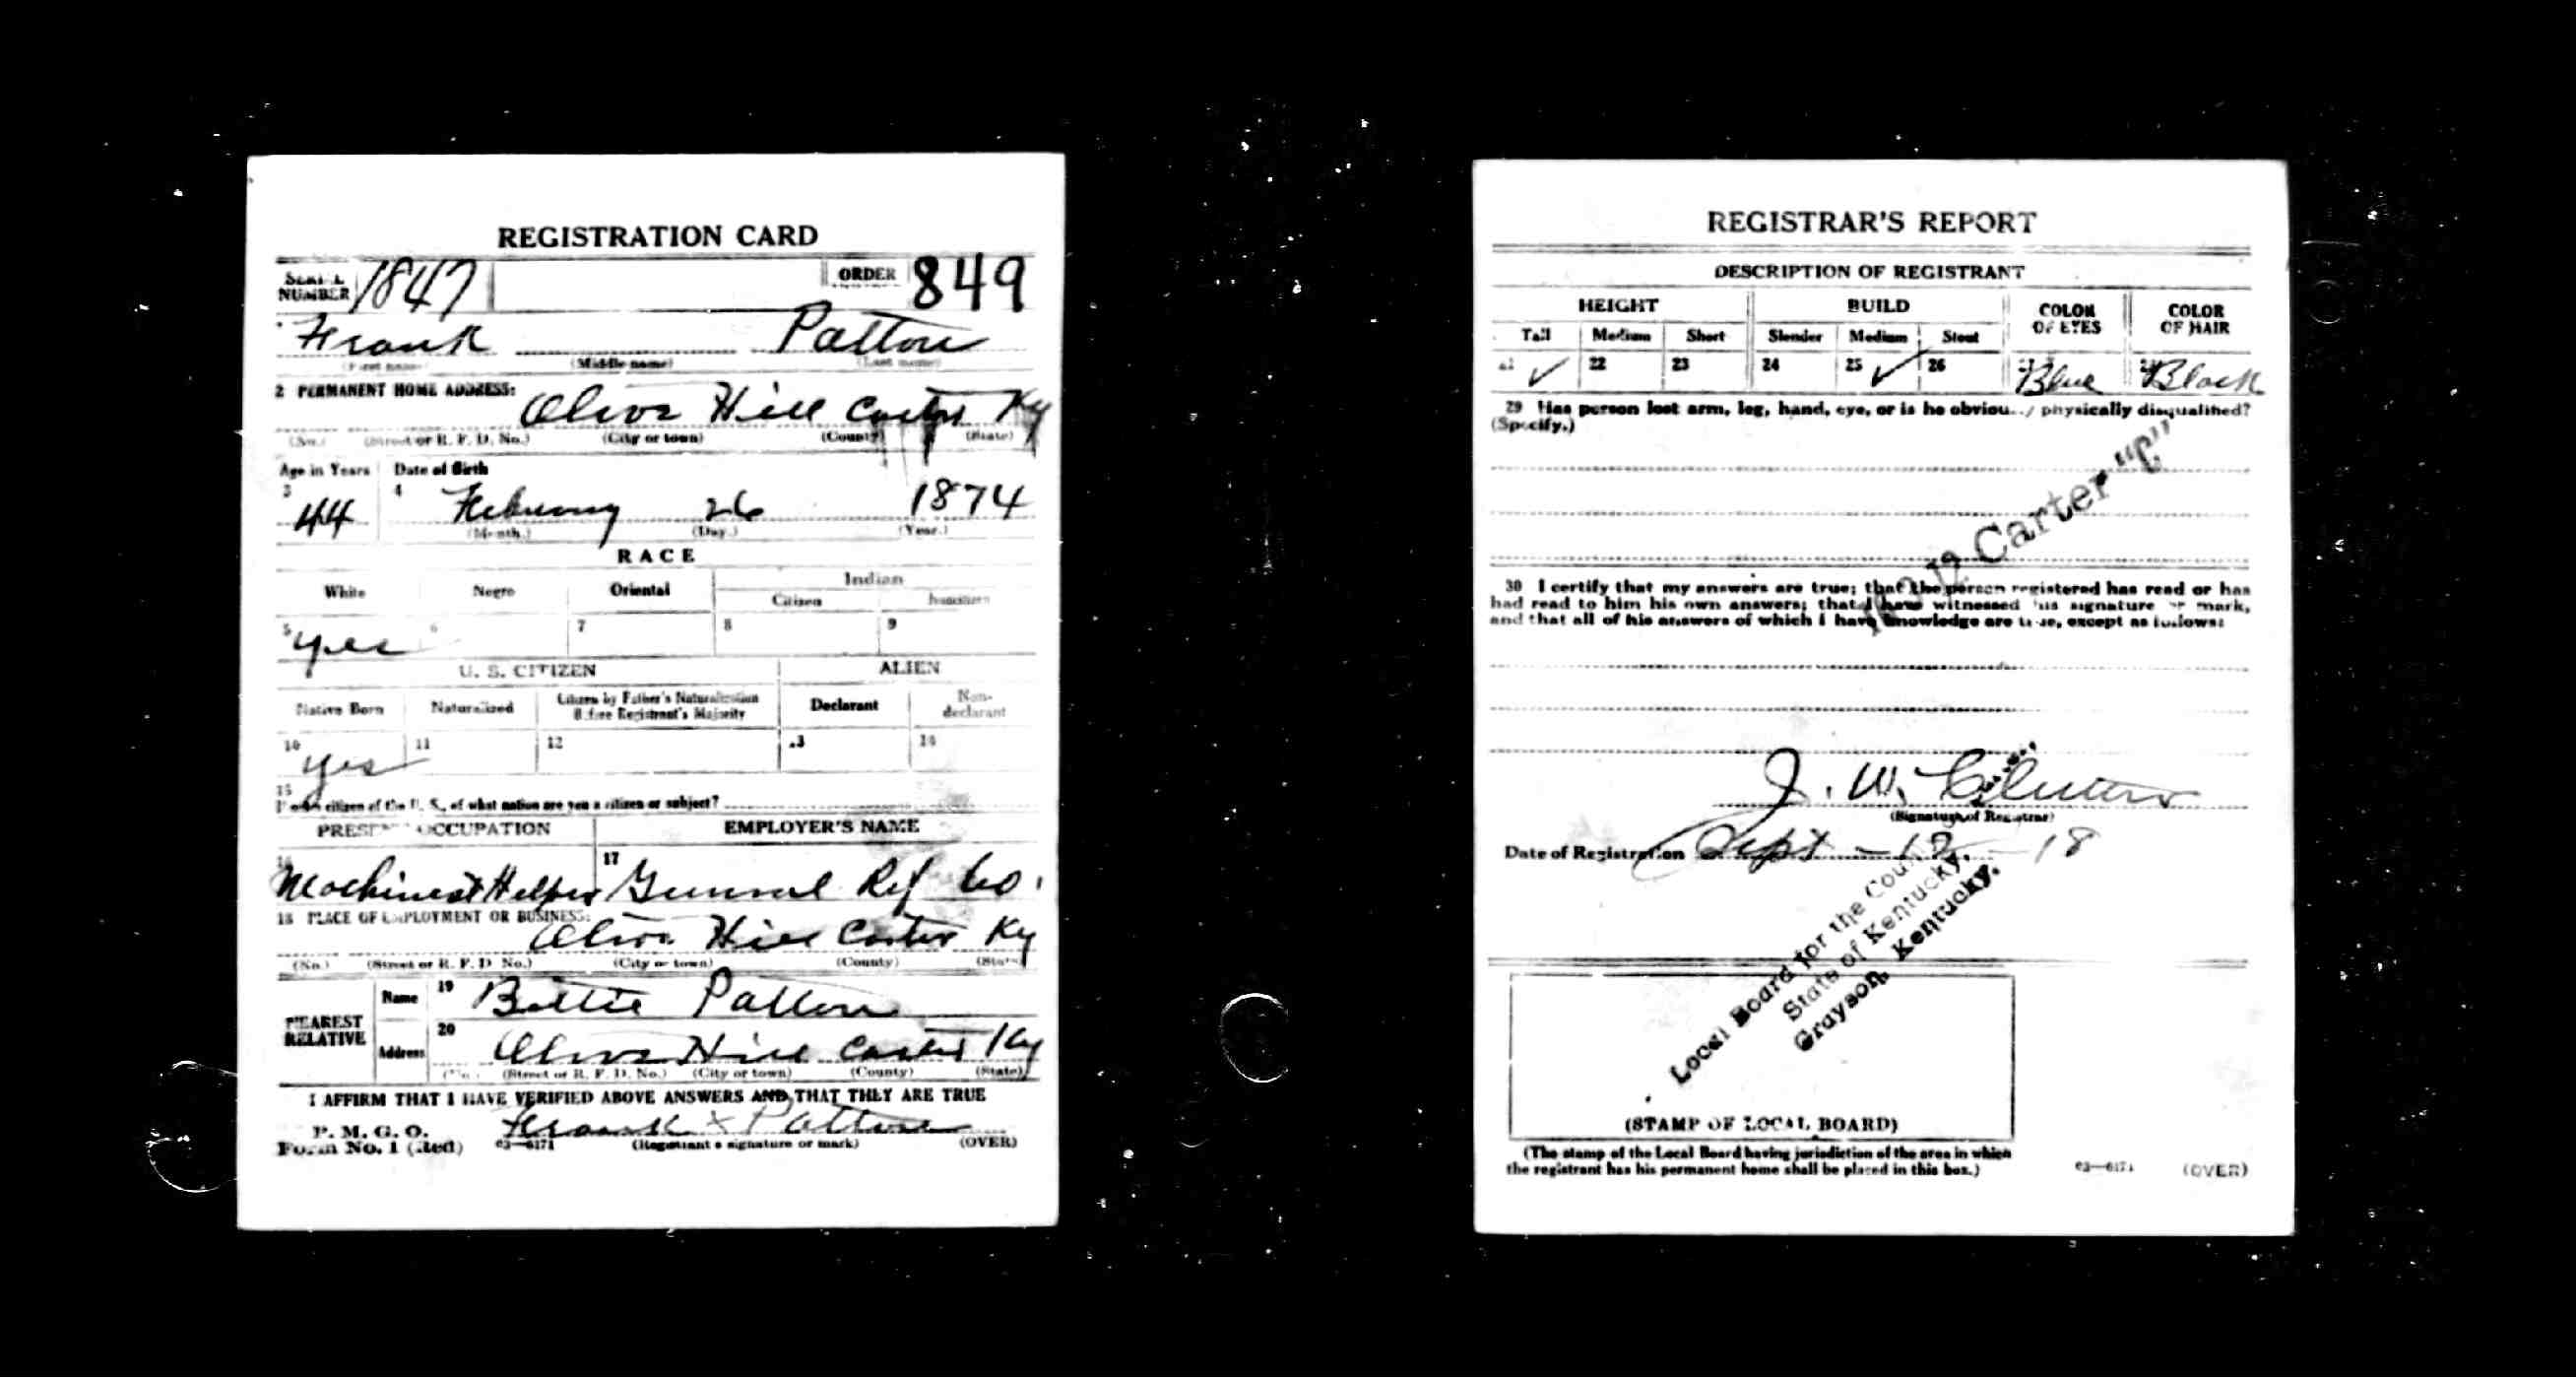 REGISTRATION CARD
SERIAL NUMBER 1847 ORDER 849
Frank Patton
(First name) (Middle name) (Last name)
2 PERMANENT HOME ADDRESS:
Olive Hill Carter Ky
(No.) (Street or R. F. D. No.) (City or town) (County) (State)
Age in Years Date of Birth
3 4
44 February 26 1874
(Month.) (Day.) (Year.)
RACE
White Negro Oriental Indian
Citizen Noncitizen
5 6 7 8 9
Yes
U. S. CITIZEN ALIEN
Native Born Naturalized Citizen by Father's Naturalization Before Registrant's Majority Declarant Non-declarant
10 11 12 13 14
Yes
15
If not a citizen of the U. S., of what nation are you a citizen or subject?
PRESENT OCCUPATION EMPLOYER'S NAME
16 17
Machinest Helper General Ref Co.
18 PLACE OF EMPLOYMENT OR BUSINESS:
Olive Hill Carter Ky
(No.) (Street or R. F. D. No.) (City or town) (County) (State)
NEAREST RELATIVE
Name 19 Bettie Patton
Address 20 Olive Hill Carter Ky
(No.) (Street or R. F. D. No.) (City or town) (County) (State)
I AFFIRM THAT I HAVE VERIFIED ABOVE ANSWERS AND THAT THEY ARE TRUE
P. M. G. O.
Form No. 1 (Red) 03—6171
Frank x Patton
(Registrant's signature or mark) (OVER)
REGISTRAR'S REPORT
DESCRIPTION OF REGISTRANT
HEIGHT BUILD COLOR OF EYES COLOR OF HAIR
Tall Medium Short Slender Medium Stout
21 ✓ 22 23 24 25 ✓ 26 27 Blue 28 Black
29 Has person lost arm, leg, hand, eye, or is he obviously physically disqualified?
(Specify.)
Carter "C"
30 I certify that my answers are true; that the person registered has read or has
had read to him his own answers; that I have witnessed his signature or mark,
and that all of his answers of which I have knowledge are true, except as follows:
J. W.
(Signature of Registrar)
Date of Registration Sept - 12 - 18
Local Board for the County
State of Kentucky,
Grayson, Kentucky.
(STAMP OF LOCAL BOARD)
(The stamp of the Local Board having jurisdiction of the area in which
the registrant has his permanent home shall be placed in this box.)
03—6171 (OVER)